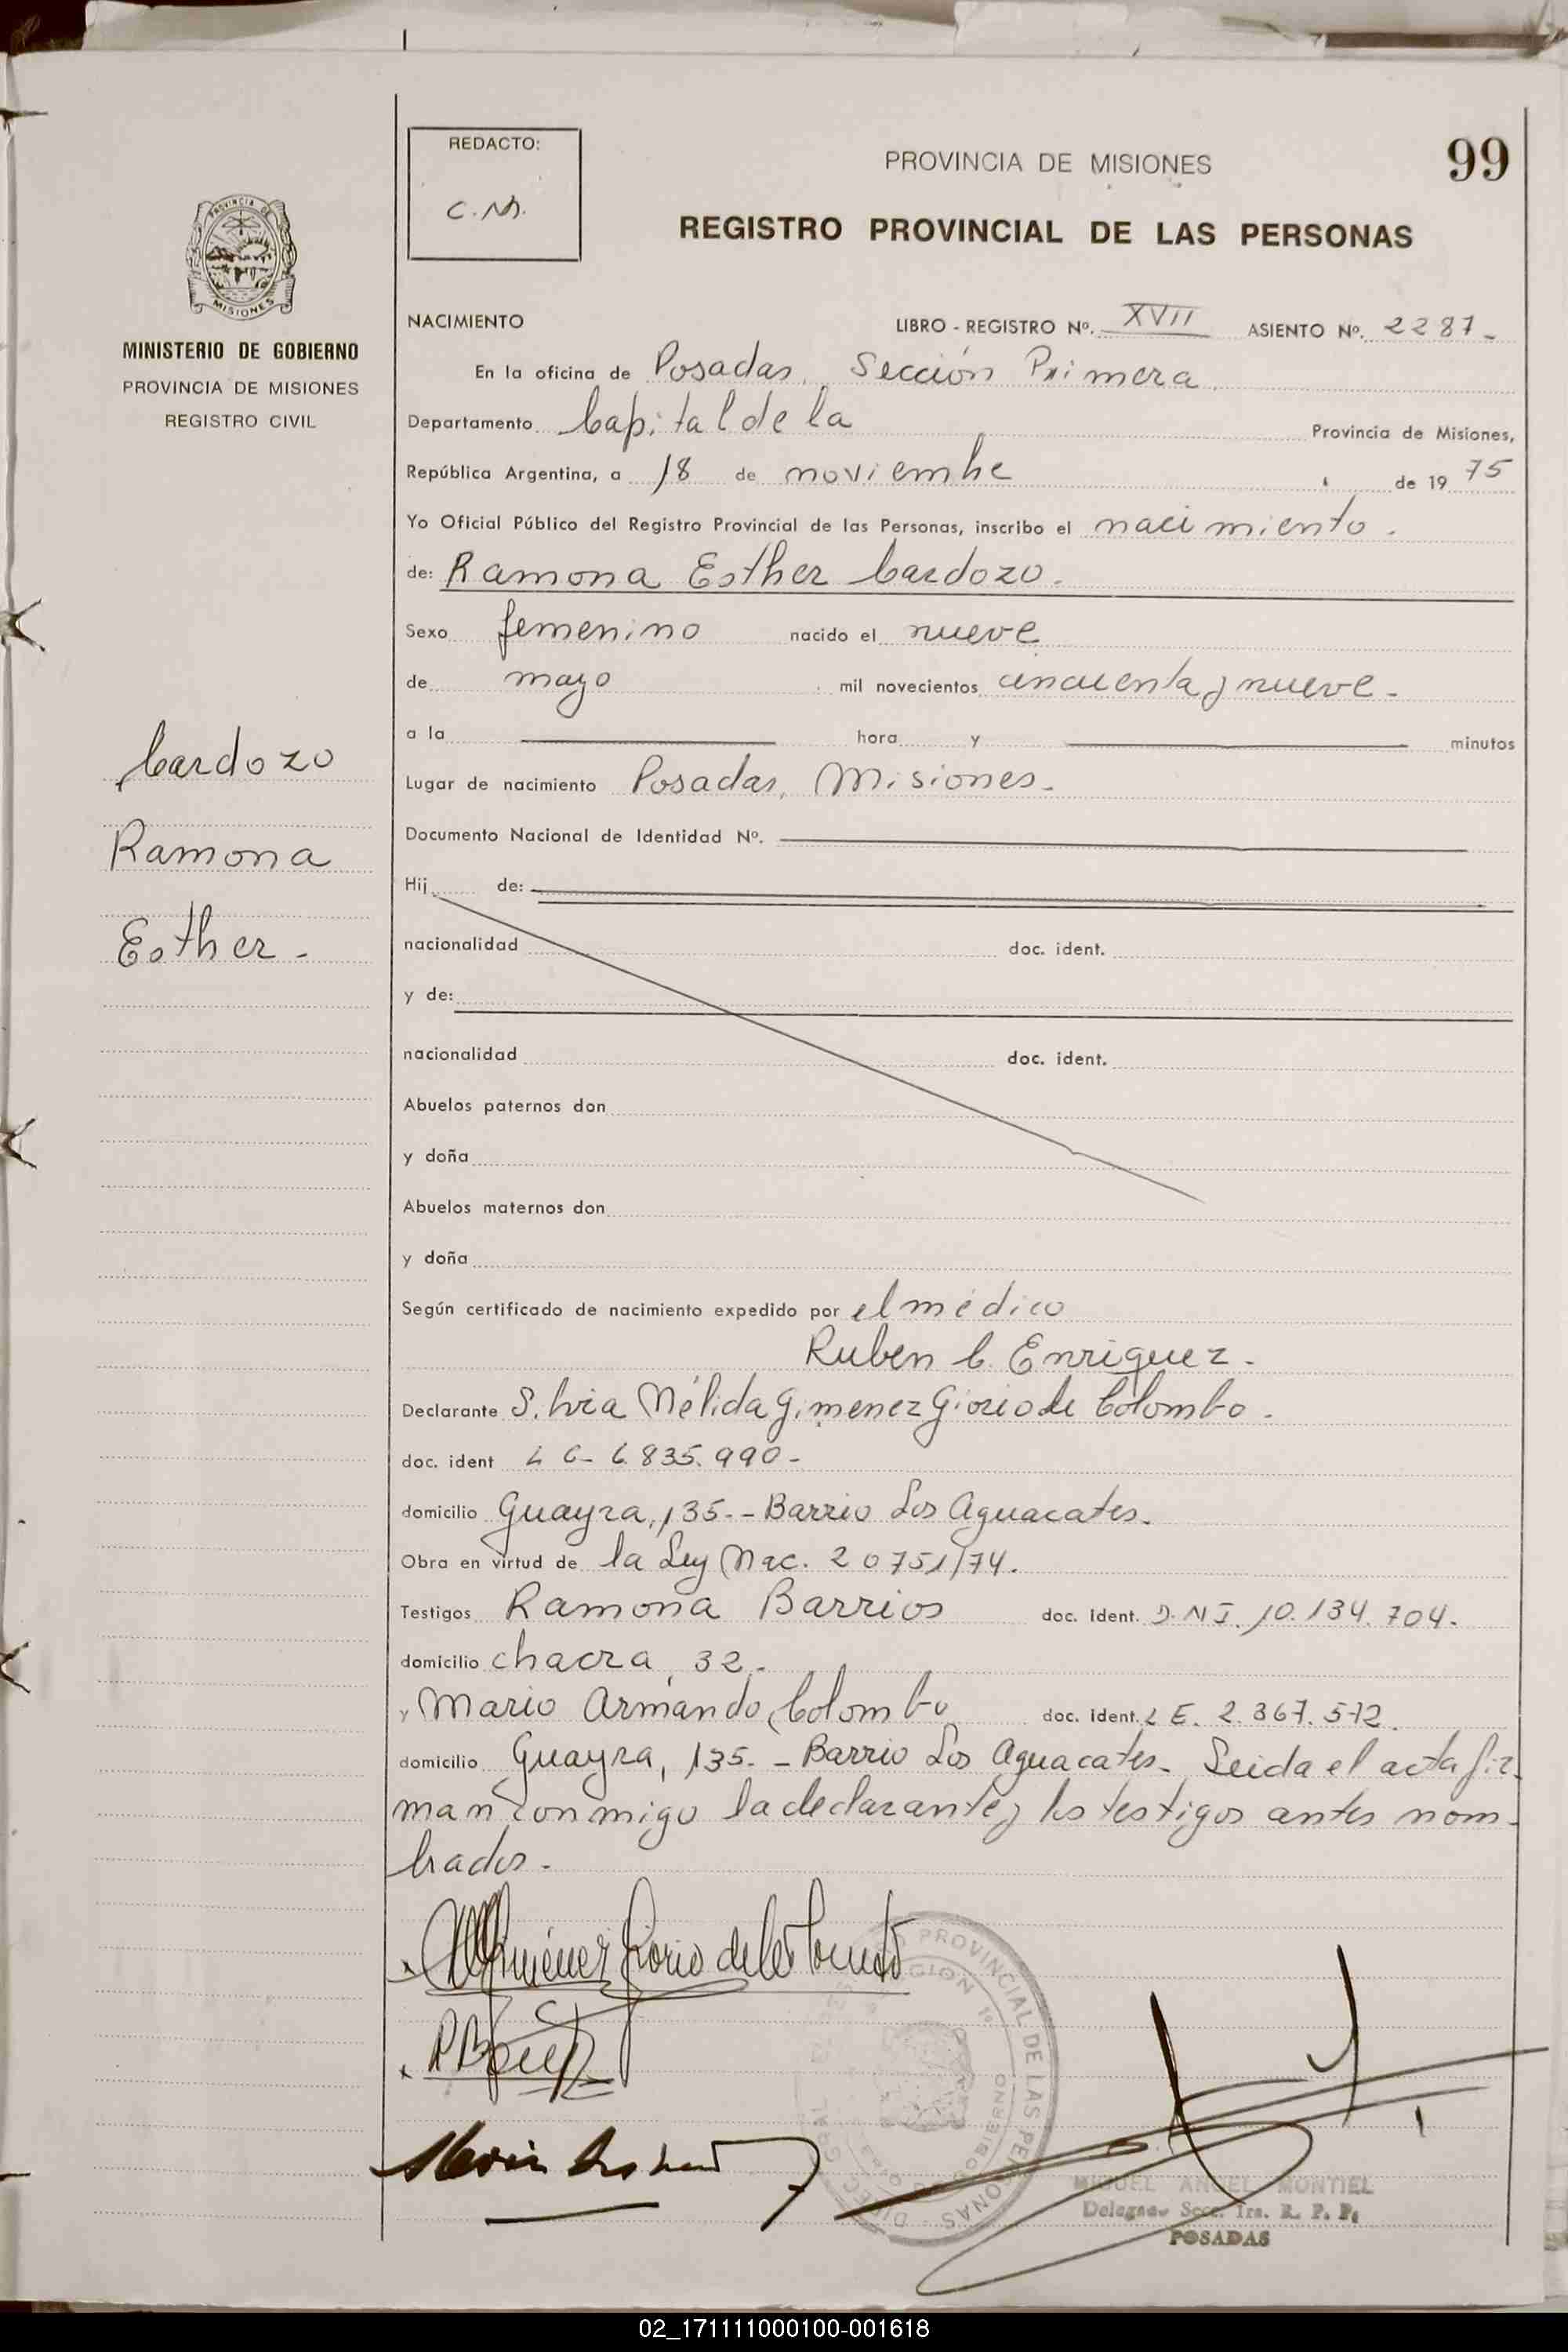 REDACTO:
C. M.
PROVINCIA DE MISIONES
99
REGISTRO PROVINCIAL DE LAS PERSONAS
PROVINCIA DE
MISIONES
MINISTERIO DE GOBIERNO
PROVINCIA DE MISIONES
REGISTRO CIVIL
NACIMIENTO
LIBRO - REGISTRO Nº. XVII ASIENTO Nº. 2287-
En la oficina de Posadas, Sección Primera
Departamento Capital de la Provincia de Misiones,
República Argentina, a 18 de noviembre de 19 75
Yo Oficial Público del Registro Provincial de las Personas, inscribo el nacimiento.
de: Ramona Esther Cardozo.
Sexo femenino nacido el nueve
de mayo mil novecientos cincuenta y nueve-
a la hora y minutos
Cardozo
Ramona
Esther-
Lugar de nacimiento Posadas, Misiones-
Documento Nacional de Identidad Nº.
Hij de:
nacionalidad doc. ident.
y de:
nacionalidad doc. ident.
Abuelos paternos don
y doña
Abuelos maternos don
y doña
Según certificado de nacimiento expedido por el médico
Ruben C. Enriquez-
Declarante Silvia Nélida Gimenez Giorio de Colombo-
doc. ident L C- 6.835.990-
domicilio Guayra, 135.- Barrio Los Aguacates.
Obra en virtud de la Ley Nac. 20751/74.
Testigos Ramona Barrios doc. ident. D.N I. 10.134.704.
domicilio chacra, 32.-
y Mario Armando Colombo doc. ident. L E. 2.367.572.
domicilio Guayra, 135.- Barrio Los Aguacates- Leida el acta fir-
man conmigo la declarante y los testigos antes nom-
brados-
Gimenez Giorio de Colombo
PROVINCIAL DE LAS PERSONAS
MIGUEL ANGEL MONTIEL
Delegado Secc. 1ra. R. P. P.
POSADAS
02_171111000100-001618